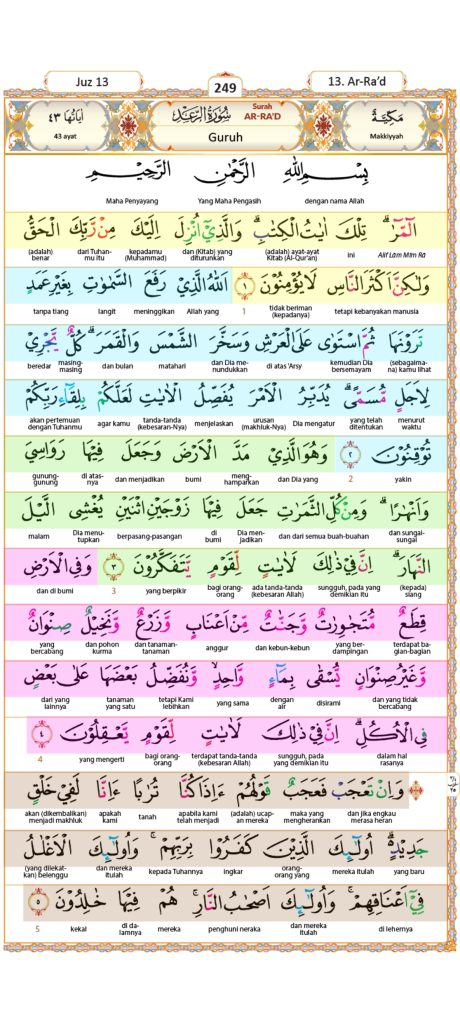 Juz 13
249
13. Ar-Ra’d
مَكِّيَّةٌ
Makkiyyah
سُوْرَةُ الرَّعْدِ
Surah AR-RA'D
Guruh
اٰيَاتُهَا ٤٣
43 ayat
بِسْمِ اللّٰهِ الرَّحْمٰنِ الرَّحِيْمِ
dengan nama Allah Yang Maha Pengasih Maha Penyayang
الۤمّۤرٰۗ تِلْكَ اٰيٰتُ الْكِتٰبِۗ وَالَّذِيْٓ اُنْزِلَ اِلَيْكَ مِنْ رَّبِّكَ الْحَقُّ
Alif Lam Mim Ra ini (adalah) ayat-ayat Kitab (Al-Qur'an) dan (Kitab) yang diturunkan kepadamu (Muhammad) dari Tuhan-mu itu (adalah) benar
وَلٰكِنَّ اَكْثَرَ النَّاسِ لَا يُؤْمِنُوْنَ ١ اَللّٰهُ الَّذِيْ رَفَعَ السَّمٰوٰتِ بِغَيْرِ عَمَدٍ
tetapi kebanyakan manusia tidak beriman (kepadanya) 1 Allah yang meninggikan langit tanpa tiang
تَرَوْنَهَا ثُمَّ اسْتَوٰى عَلَى الْعَرْشِ وَسَخَّرَ الشَّمْسَ وَالْقَمَرَۗ كُلٌّ يَّجْرِيْ
(sebagaima-na) kamu lihat kemudian Dia bersemayam di atas 'Arsy dan Dia me-nundukkan matahari dan bulan masing-masing beredar
لِاَجَلٍ مُّسَمًّىۗ يُدَبِّرُ الْاَمْرَ يُفَصِّلُ الْاٰيٰتِ لَعَلَّكُمْ بِلِقَاۤءِ رَبِّكُمْ
menurut waktu yang telah ditentukan Dia mengatur urusan (makhluk-Nya) menjelaskan tanda-tanda (kebesaran-Nya) agar kamu akan pertemuan dengan Tuhanmu
تُوْقِنُوْنَ ٢ وَهُوَ الَّذِيْ مَدَّ الْاَرْضَ وَجَعَلَ فِيْهَا رَوَاسِيَ
yakin 2 dan Dia yang meng-hamparkan bumi dan menjadikan di atas-nya gunung-gunung
وَاَنْهٰرًاۗ وَمِنْ كُلِّ الثَّمَرٰتِ جَعَلَ فِيْهَا زَوْجَيْنِ اثْنَيْنِ يُغْشِى الَّيْلَ
dan sungai-sungai dan dari semua buah-buahan dan Dia men-jadikan di bumi berpasang-pasangan Dia menu-tupkan malam
النَّهَارَۗ اِنَّ فِيْ ذٰلِكَ لَاٰيٰتٍ لِّقَوْمٍ يَّتَفَكَّرُوْنَ ٣ وَفِى الْاَرْضِ
(kepada) siang sungguh, pada yang demikian itu ada tanda-tanda (kebesaran Allah) bagi orang-orang yang berpikir 3 dan di bumi
قِطَعٌ مُّتَجٰوِرٰتٌ وَّجَنّٰتٌ مِّنْ اَعْنَابٍ وَّزَرْعٌ وَّنَخِيْلٌ صِنْوَانٌ
terdapat ba-gian-bagian yang ber-dampingan dan kebun-kebun anggur dan tanaman-tanaman dan pohon kurma yang bercabang
وَّغَيْرُ صِنْوَانٍ يُّسْقٰى بِمَاۤءٍ وَّاحِدٍۙ وَّنُفَضِّلُ بَعْضَهَا عَلٰى بَعْضٍ
dan yang tidak bercabang disirami dengan air yang sama tetapi Kami lebihkan tanaman yang satu dari yang lainnya
فِى الْاُكُلِۗ اِنَّ فِيْ ذٰلِكَ لَاٰيٰتٍ لِّقَوْمٍ يَّعْقِلُوْنَ ٤
dalam hal rasanya sungguh, pada yang demikian itu terdapat tanda-tanda (kebesaran Allah) bagi orang-orang yang mengerti 4
وَاِنْ تَعْجَبْ فَعَجَبٌ قَوْلُهُمْ ءَاِذَا كُنَّا تُرٰبًا ءَاِنَّا لَفِيْ خَلْقٍ
dan jika engkau merasa heran maka yang mengherankan (adalah) ucap-an mereka apabila kami telah menjadi tanah apakah kami akan (dikembalikan) menjadi makhluk
جَدِيْدٍ ەۗ اُولٰۤىِٕكَ الَّذِيْنَ كَفَرُوْا بِرَبِّهِمْۚ وَاُولٰۤىِٕكَ الْاَغْلٰلُ
yang baru mereka itulah orang-orang yang ingkar kepada Tuhannya dan mereka itulah (yang dilekat-kan) belenggu
فِيْٓ اَعْنَاقِهِمْۚ وَاُولٰۤىِٕكَ اَصْحٰبُ النَّارِۚ هُمْ فِيْهَا خٰلِدُوْنَ ٥
di lehernya dan mereka itulah penghuni neraka mereka di da-lamnya kekal 5